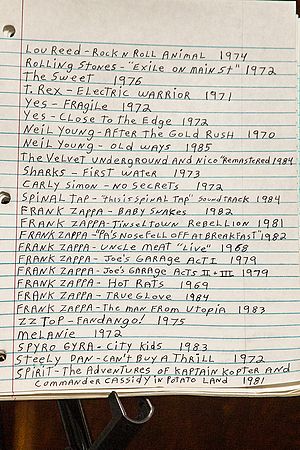 Lou Reed - Rock n Roll Animal 1974
Rolling Stones - "Exile on Main St" 1972
The Sweet 1976
T. Rex - Electric Warrior 1971
Yes - Fragile 1972
Yes - Close to the Edge 1972
Neil Young - After the Gold Rush 1970
Neil Young - Old Ways 1985
The Velvet Underground and Nico "Remastered 1984
Sharks - First Water 1973
Carly Simon - No Secrets 1972
Spinal Tap - "This is Spinal Tap" Soundtrack 1984
Frank Zappa - Baby Snakes 1982
Frank Zappa - Tinsel Town Rebellion 1981
Frank Zappa - "Pa's Nose Fell Off at Breakfast" 1982
Frank Zappa - Uncle Meat "Live" 1968
Frank Zappa - Joe's Garage Act I 1979
Frank Zappa - Joe's Garage Acts II + III 1979
Frank Zappa - Hot Rats 1969
Frank Zappa - True Glove 1984
Frank Zappa - The Man From Utopia 1983
ZZ Top - Fandango! 1975
Melanie 1972
Spyro Gyra - City Kids 1983
Steely Dan - Can't Buy a Thrill 1972
Spirit - The Adventures of Kaptain Kopter and
Commander Cassidy in Potato Land 1981